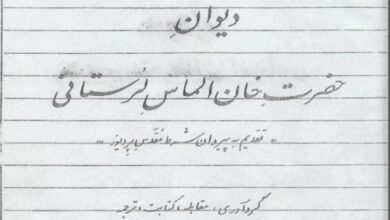 دیوانِ
حضرتِ خان الماسِ لُرستانی
« تقدیم به پیروان شاه مُقَدَّسِ پِردیوَر »
گردآوری، مقابله، کتابت، ترجمه